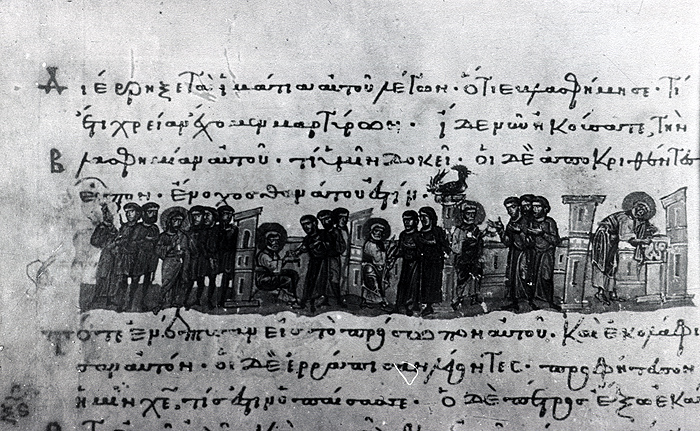 Διέρρηξε τὰ ἱμάτια αὐτοῦ λέγων· ὅτι ἐβλασφήμησε· τί
ἔτι χρείαν ἔχομεν μαρτύρων· ἴδε νῦν ἠκούσατε τὴν
Βλασφημίαν αὐτοῦ· τί ὑμῖν δοκεῖ· οἱ δὲ ἀποκριθέντ
εἶπον· ἔνοχος θανάτου ἐστίν·
τότε ἐνέπτυσαν εἰς τὸ πρόσωπον αὐτοῦ· καὶ ἐκολάφι
σαν αὐτόν· οἱ δὲ ἐρράπισαν λέγοντες·
ἡμῖν χε, τίς ἐστιν ὁ παίσας σε· ὁ δὲ πέτρος ἔξω